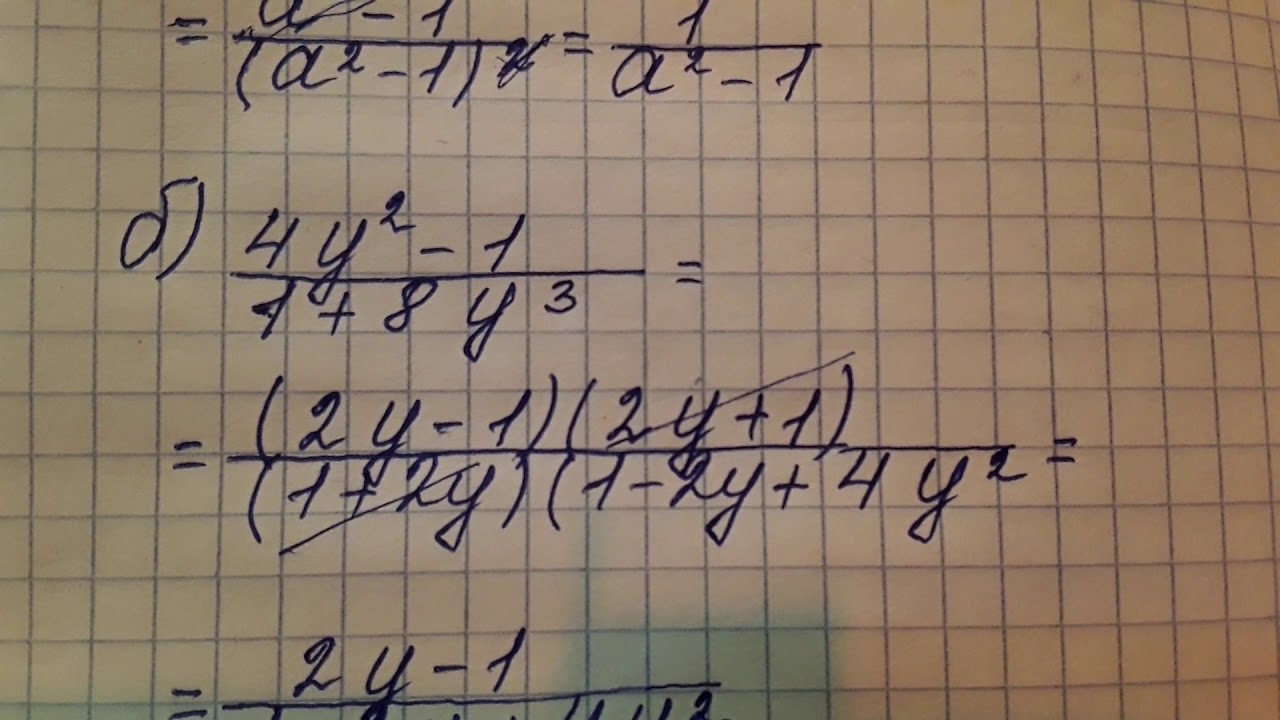 = a - 1 / (a² - 1)² = 1 / a² - 1
б) 4y² - 1 / 1 + 8y³ =
= (2y - 1)(2y + 1) / (1 + 2y)(1 - 2y + 4y² =
= 2y - 1